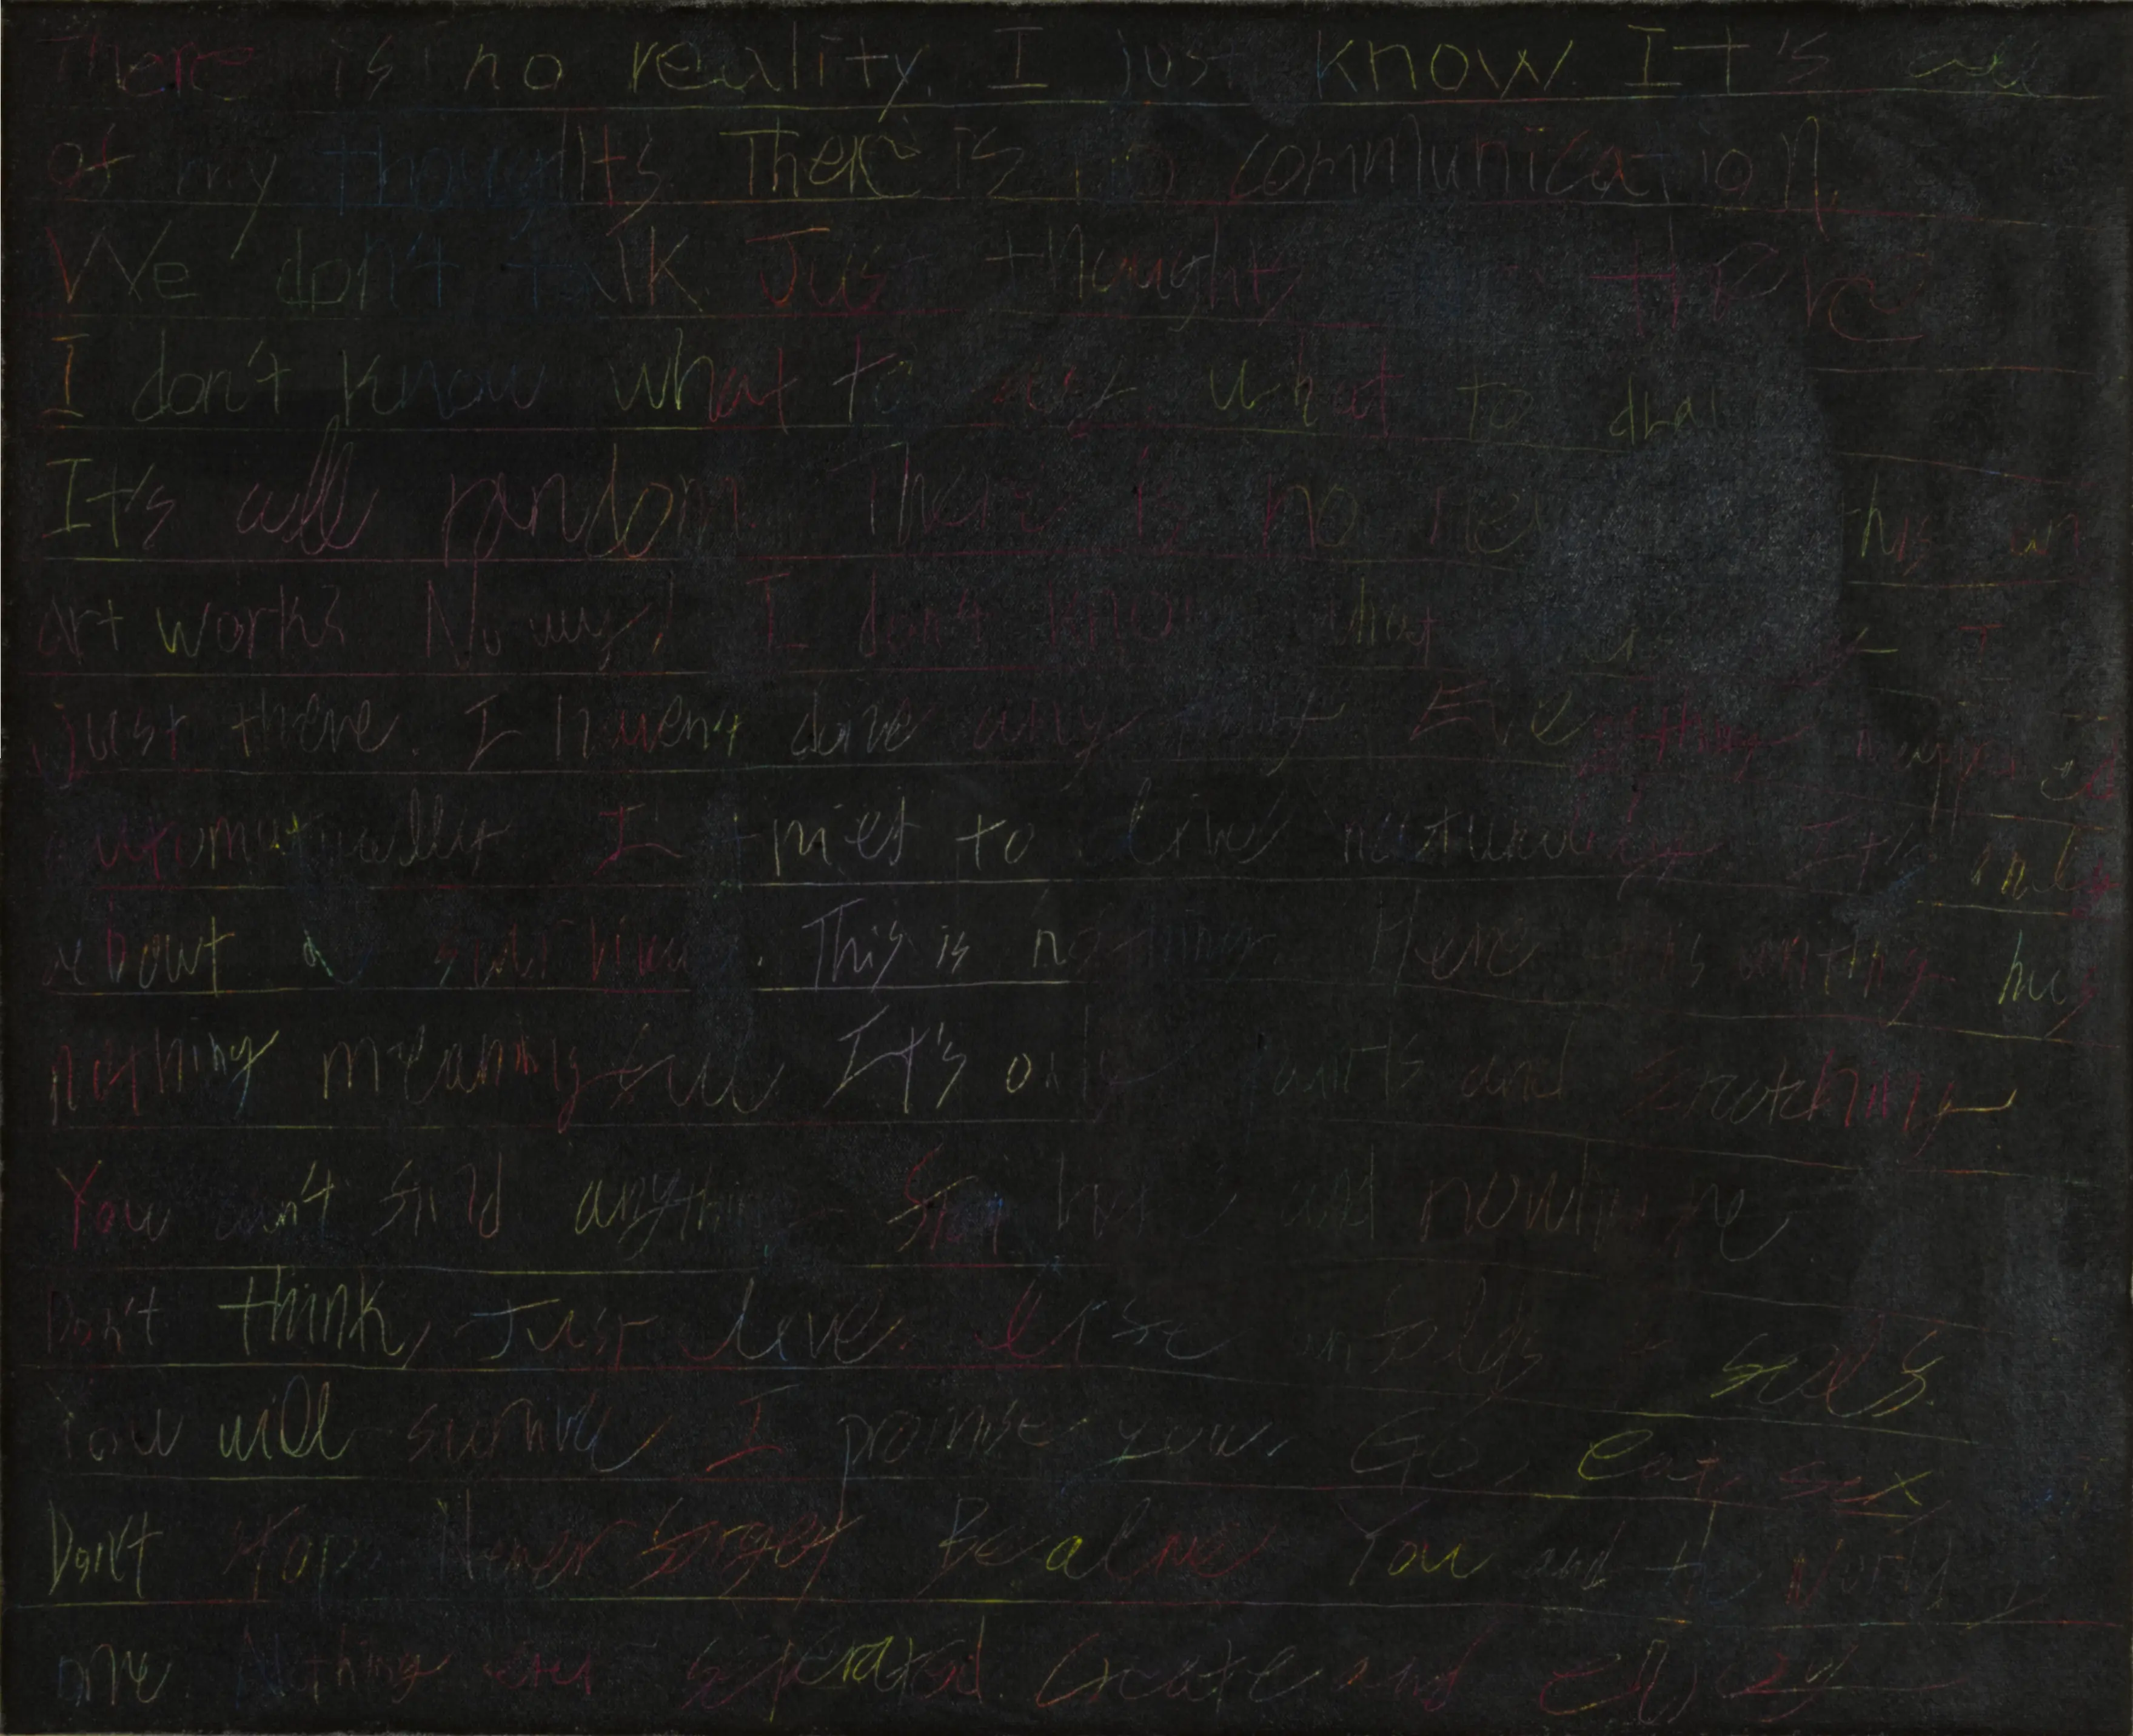 There is no reality. I just know. It's all
of my thoughts. There is no communication.
We don't talk. Just thoughts
I don't know what to say. what to
It's all random. There is no this
art works? No way! I don't know what
just there. I haven't done any thing. Everything happened
automatically. I tried to live naturally. It's only
about a This is nothing. Here has
nothing meaningful. It's only paints and scratching
You can't find anything. here and nowhere
Don't think, Just live.
You will survive, I promise you. Go, eat, sex
Don't stop. Never forget. Be alive. You and the World
one. Nothing ever seperated. Create and enjoy